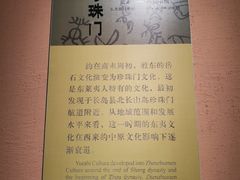 珠
门
约在商末周初，胶东的岳
石文化演变为珍珠门文化，这
是东莱夷人特有的文化，最初
发现于长岛县北长山岛珍珠门
航道附近。从地域范围和发展
水平来看，这一时期的东夷文
化在西来的中原文化影响下逐
渐衰退。
Yueshi Culture developed into Zhenzhumen
Culture around the end of Shang dynasty and
the beginning of Zhou dynasty. Zhenzhumen